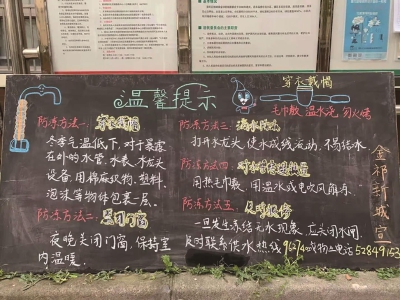 温馨提示
穿衣戴帽
毛巾敷 温水浇 勿火烤
防冻方法一:穿衣戴帽
冬季气温低下,对于暴露
在外的水管、水表、水龙头
设备,用棉麻织物、塑料、
泡沫等物体包裹一层。
防冻方法二:关闭门窗
夜晚关闭门窗,保持室
内温暖。
防冻方法三:
打开水龙头,使水成线流动,不易结冰
防冻方法四:
用热毛巾敷,用温水或电吹风解冻。
防冻方法五:及时报修
一旦发生冻结无水现象,应关闭水闸
及时联系供水热线962740或物业电话52849153
金祁新城宣